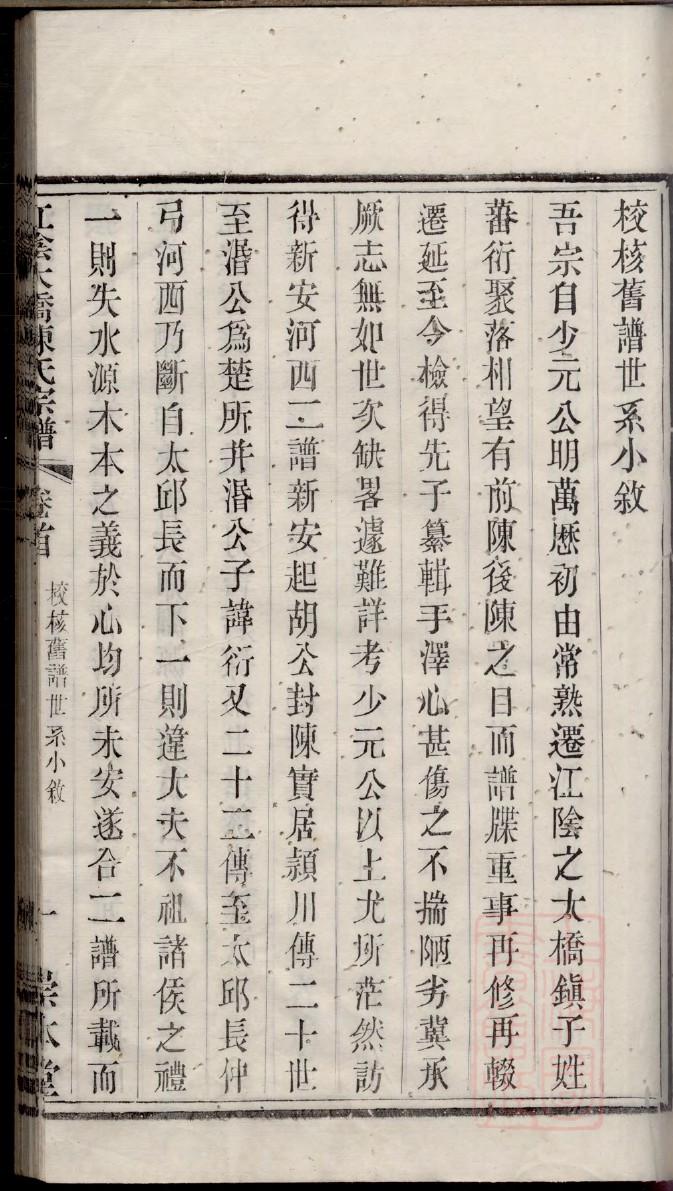 校核舊譜世系小敘
吾宗自少元公明萬厯初由常熟遷江陰之大橋鎮子姓
蕃衍聚落相望有前陳後陳之目而譜牒重事再修再輟
遷延至今檢得先子纂輯手澤心甚傷之不揣陋劣冀承
厥志無如世次缺畧遽難詳考少元公以上尤所茫然訪
得新安河西二譜新安起胡公封陳實居潁川傳二十世
至湣公爲楚所并湣公子諱衍又二十二傳至太邱長仲
弓河西乃斷自太邱長而下一則違大夫不祖諸侯之禮
一則失水源木本之義於心均所未安遂合二譜所載而
江陰大橋陳氏宗譜 卷首 校核舊譜世系小敘 一 崇本堂